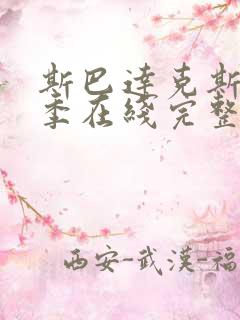 斯巴達克斯
季在綫完整
西安-武漢-福